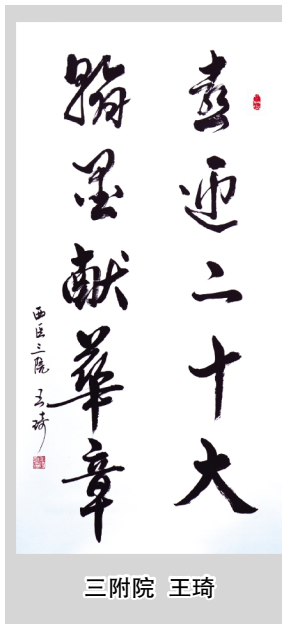 喜迎二十大
翰墨献華章
西医三院 王琦
三附院 王琦